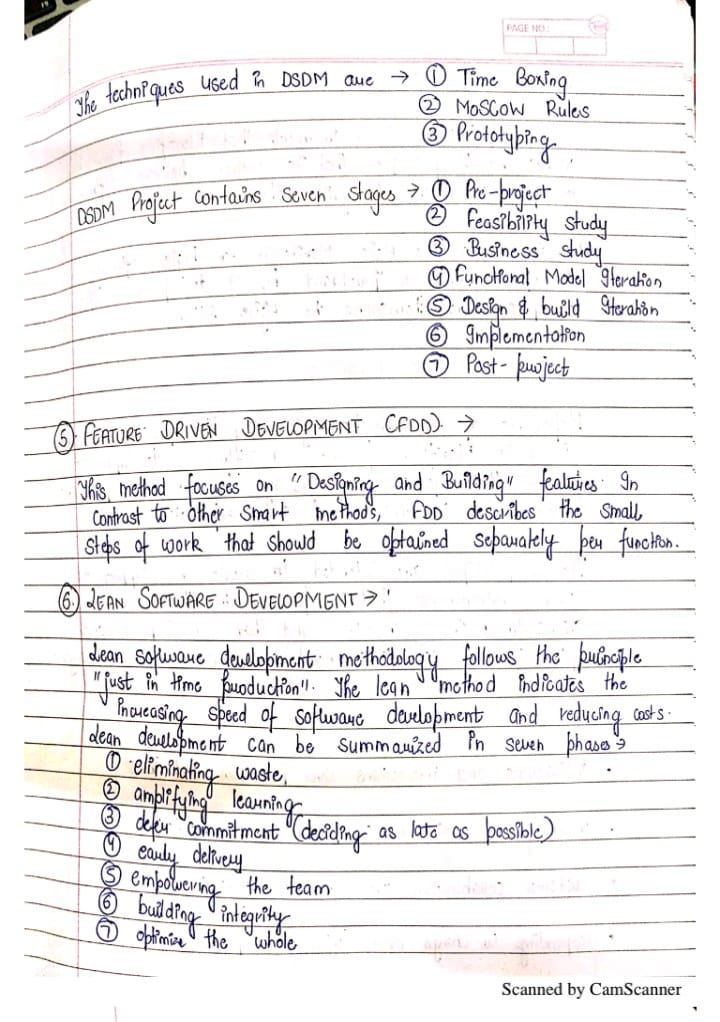 PAGE NO.:
The techniques used in DSDM are → ① Time Boxing
② MoSCoW Rules
③ Prototyping
DSDM Project contains seven stages → ① Pre-project
② Feasibility study
③ Business study
④ Functional Model Iteration
⑤ Design & build Iteration
⑥ Implementation
⑦ Post-project
⑤ FEATURE DRIVEN DEVELOPMENT (FDD) →
This method focuses on "Designing and Building" features. In
contrast to other smart methods, FDD describes the small
steps of work that should be obtained separately per function.
⑥ LEAN SOFTWARE DEVELOPMENT →
Lean software development methodology follows the principle
"just in time production". The lean method indicates the
increasing speed of software development and reducing costs.
Lean development can be summarized in seven phases →
① eliminating waste,
② amplifying learning
③ defer commitment (deciding as late as possible)
④ early delivery
⑤ empowering the team
⑥ building integrity
⑦ optimize the whole
Scanned by CamScanner